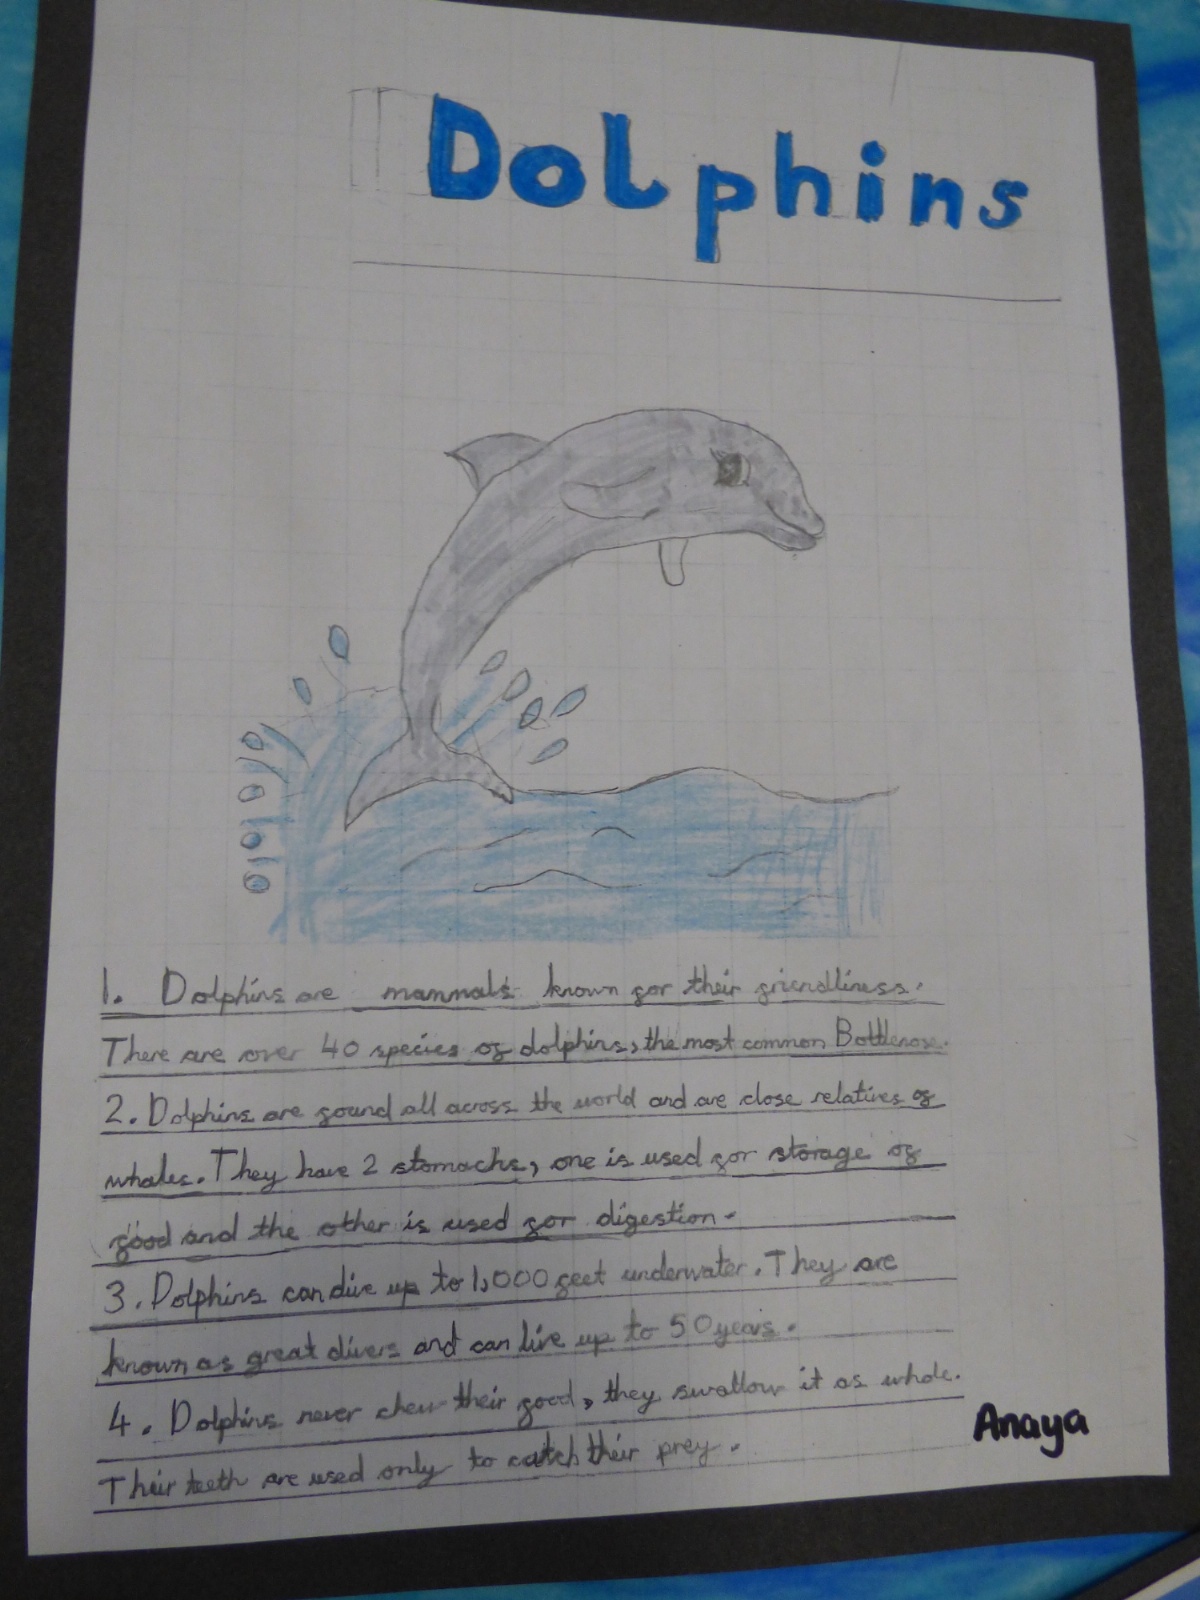 Dolphins
1. Dolphins are mammals known for their friendliness.
There are over 40 species of dolphins, the most common Bottlenose.
2. Dolphins are found all across the world and are close relatives of
whales. They have 2 stomachs, one is used for storage of
food and the other is used for digestion.
3. Dolphins can dive up to 1,000 feet underwater. They are
known as great divers and can live up to 50 years.
4. Dolphins never chew their food, they swallow it as whole.
Their teeth are used only to catch their prey.
Anaya